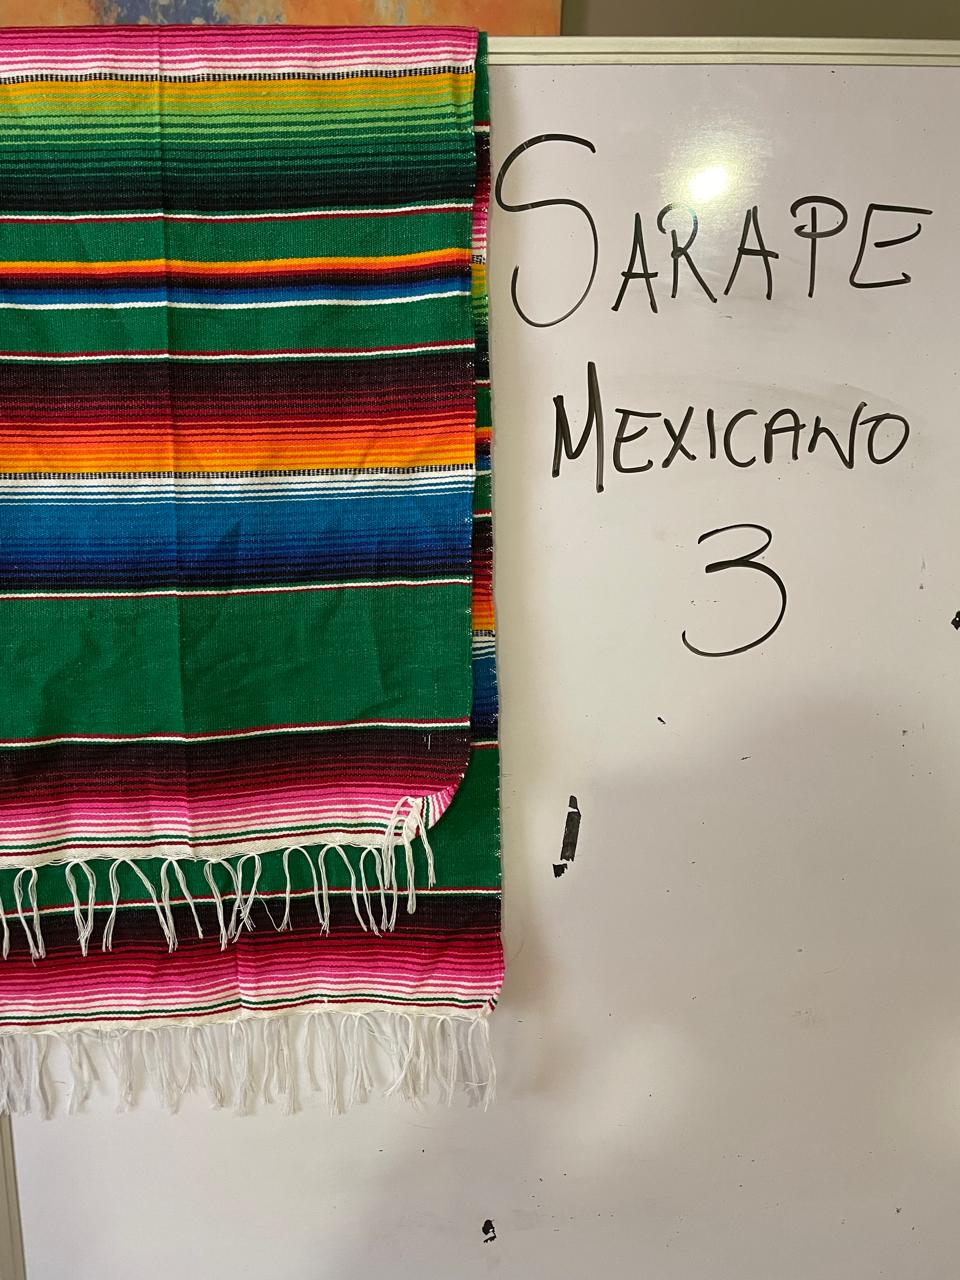 SARAPE
MEXICANO
3